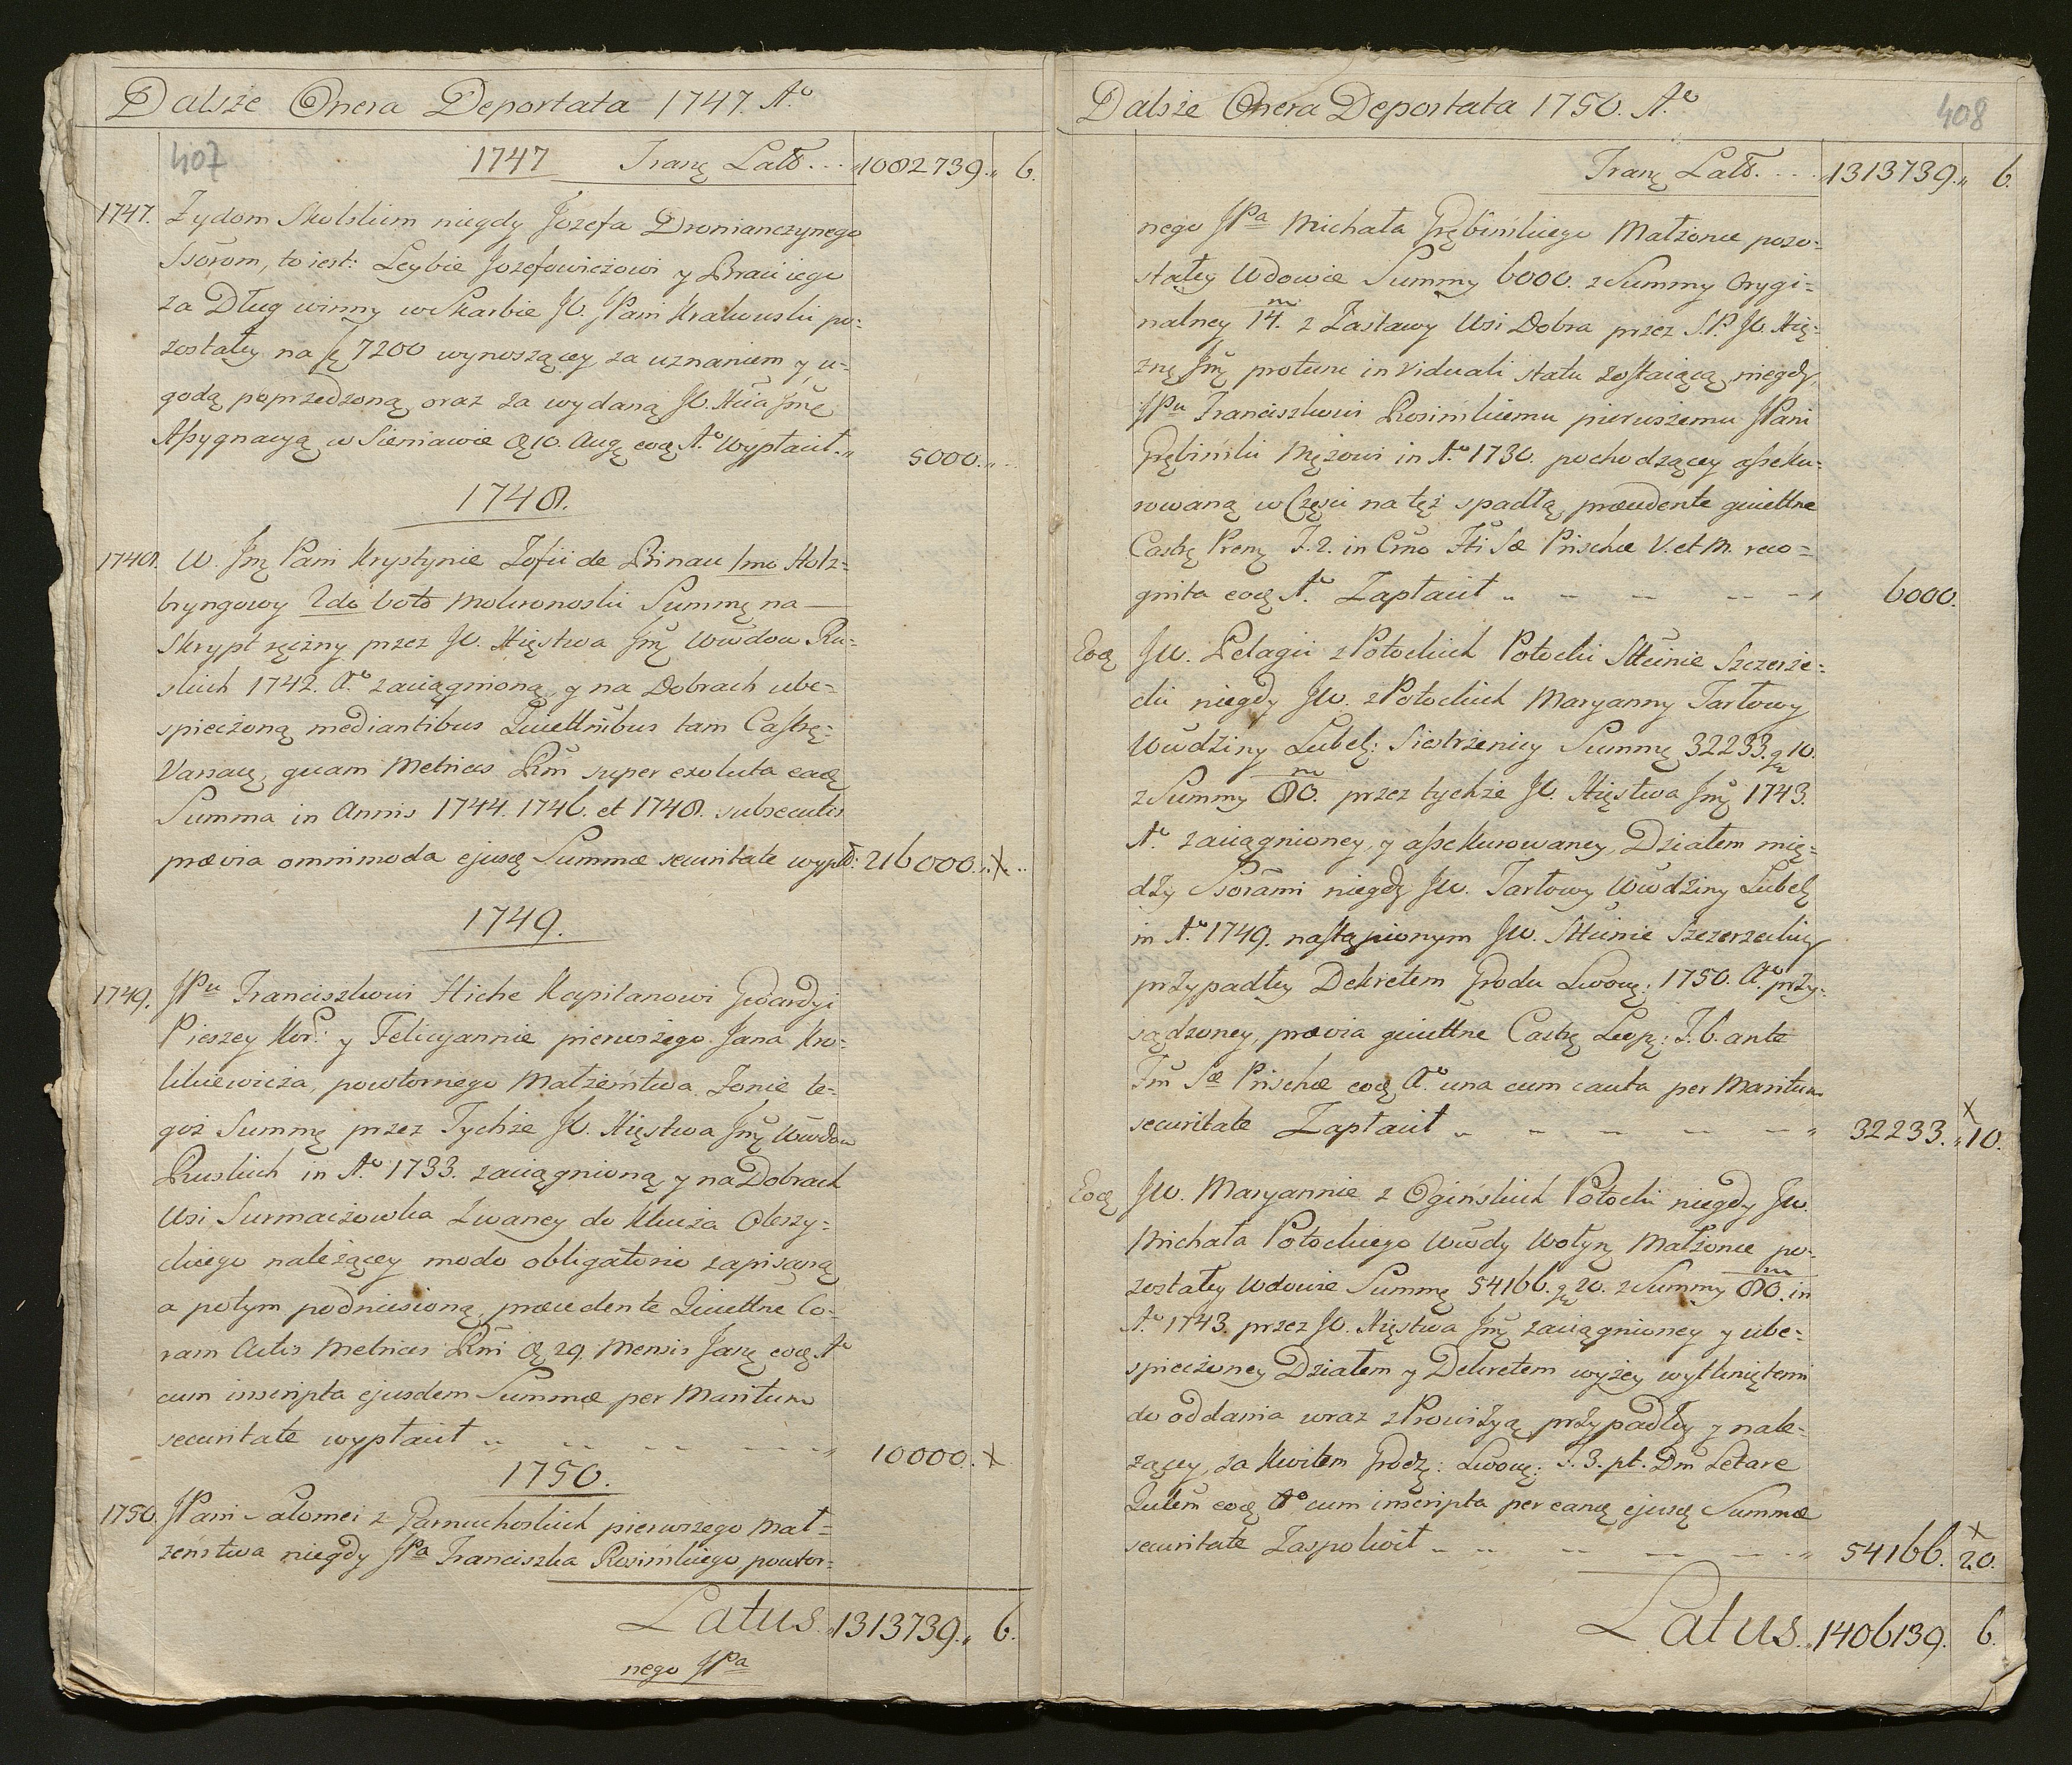 Dalsze Onera Deportata 1747. Aº
407
1747 Tranę Lató. 1082739. 6.
1747. Żydom Skolskim niegdy Jozefa Dronianczynego
Ssōrom, to iest: Leybie Jozefowiczowi y Braci iego
za Dług winny w Skarbie JO. JPani Krakowski po=
zostały na 7200 wynoszący za uznaniem y u=
godą poprzedzoną oraz za wydaną JO. Xcia Jmć
Assygnacyą w Sieniawie 10. Aug eoę Aº Wypłacił. 5000.
1748.
1748. W. Jmę Pani Krystynie Zofii de Binau 1mo Holz=
bryngowy 2do boto Mokronoski Summę na
Skrypt ręczny przez JO. Xięstwa Jmę Wwdow Ru=
skich 1742. Aº zaciągnioną, y na Dobrach ube=
spieczoną mediantibus Quiettnibus tam Castrę
Varsav, quam Metrices Rñi super exoluta eaę
Summa in Annis 1744. 1746. et 1748. subsecutis
prævia omnimoda ejusę Summæ securitate wypłó: 216000. X
1749.
1749. JPu Franciszkowi Hiche Kapitanowi Gwardyi
Pieszey Kor: y Felicyannie pierwszego Jana Kro=
likiewicza, powtornego Małżeństwa Zonie te=
goż Summę przez Tychże JO. Xięstwa Jmę Wwdow
Ruskich in Aº 1733. zaciągnioną y na Dobrach
Wsi Surmaczowka zwaney do Klucza Oleszy=
ckiego należący modo obligatorio zapisaną
a potym podniesioną, præcedente Quiettne Co=
ram Actis Metrices Rñi 29. Mensis Janę eoę Aº
cum inscripta ejusdem Summæ per Maritum
securitate wypłacił 10000. X
1750.
1750. JPani Salomei z Garnuchoskich pierwszego Mał=
żeństwa niegdy JPa Franciszka Rosinskiego powtor=
Latus. 1313739. 6.
nego JPa
Dalsze Onera Deportata 1750. Aº
408
Tranę Lató. 1313739. 6.
nego JPa Michała Grębinskiego Małżonce pozo=
stałey Wdowie Summy 6000. z Summy Orygi=
nalney 14.m z Zastawy Wsi Dobra przez S.P. JO. Xię=
żnę Jmę protunc in Viduali statu zostaiącą, niegdy
JPu Franciszkowi Rosinskiemu pierwszemu JPani
Grębinski Mężowi in Aº 1730. pochodzący asseku=
rowaną w Części na tęż spadłą, præcedente quiettne
Castrę Premę F. 2. in Crño Fti Sæ Priscæ V. et M. reco=
gnita eoę Aº Zapłacił 6000.
Eoę JW. Pelagii z Potockich Potocki Stcinie Szczerze=
cki niegdy JW. z Potockich Maryanny Tarłowy
Wwdziny Lubel: Siestrzenicy Summę 32233. g 10.
z Summy 80.m przez tychże JO. Xięstwa Jmę 1743.
Aº zaciągnioney, y assekurowaney, Działem mię=
dzy Ssorāmi niegdy JW. Tarłowy Wwdziny Lubelę
in Aº 1749. nastąpionym JW. Stcinie Szczerzecki
przypadłey Dekretem Grodu Lwowę: 1750. Aº przy=
sądzoney, prævia quiettne Castrę Leopę: F. 6. ante
Fm Sæ Priscæ eoę Aº una cum cauta per Maritum
securitate Zapłacił 32233. X 10.
Eoę JW. Maryannie z Oginskich Potocki niegdy JW.
Michała Potockiego Wwdy Wołynę Małżonce po=
zostałey Wdowie Summę 54166. g 20. z Summy 80.m in
Aº 1743. przez JO. Xięstwa Jmę zaciągnioney y ube=
spieczoney Działem y Dekretem wyżey wytkniętemi
do oddania wraz z Prowizyą przypadłey y nale=
żącey, za Kwitem Grodzę: Lwowę: F. 3. pt. Dm̃ Letare
Qulem eoę Aº cum inscripta per eanę ejusę Summæ
securitate Zaspokoił 54166. X 20.
Latus. 1406139. 6.